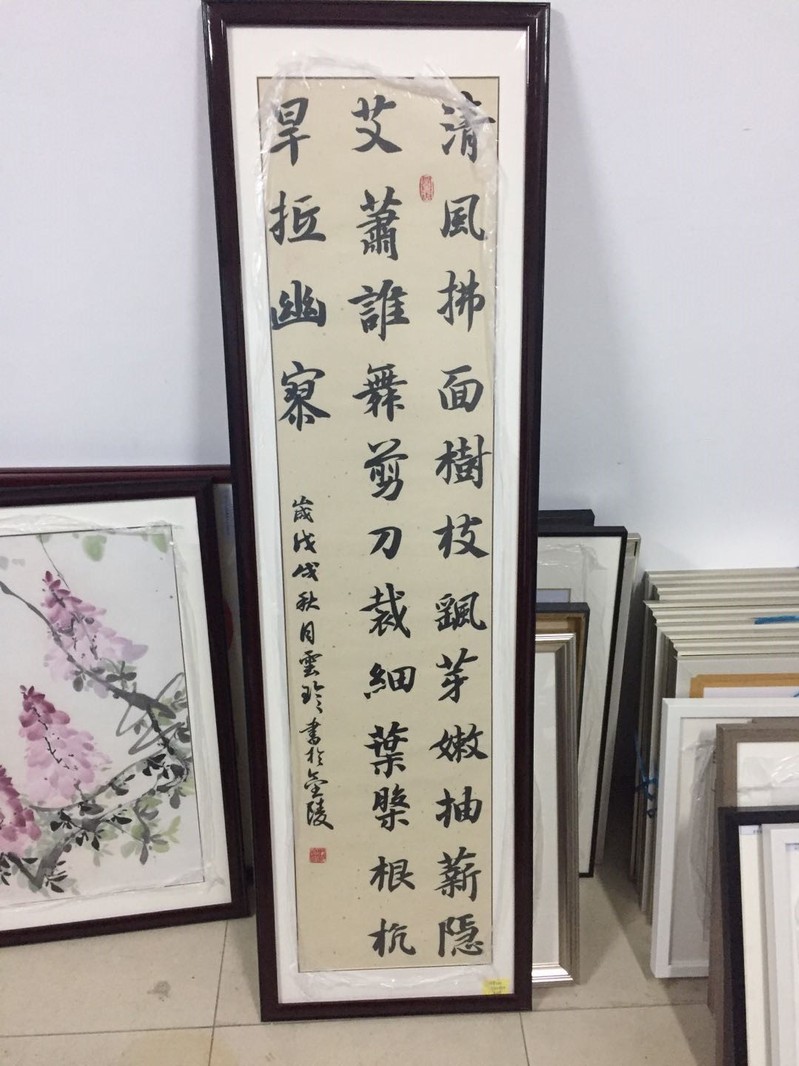 清風拂面樹枝飄芽嫩抽薪隱
艾蕭誰舞剪刀裁細葉槃根杭
旱幽寮
歲戊戌秋月雲玲書於金陵